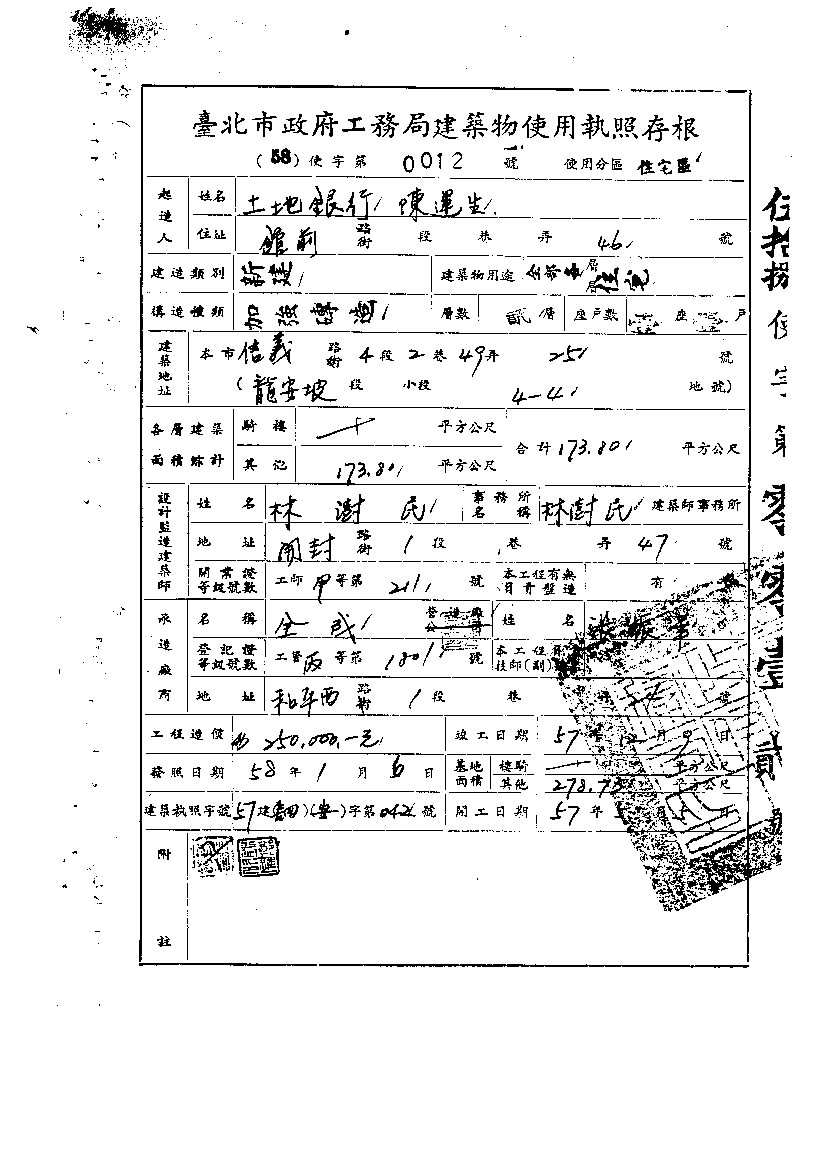 臺北市政府工務局建築物使用執照存根
(58)使字第 0012 號 使用分區 住宅區
起造人 姓名 土地銀行 陳運生
住址 館前 路街 段 巷 弄 46 號
建造類別 新建 建築物用途 全部 住宅
構造種類 加強磚造 層數 貳層 座戶數 座 戶
建築地址 本市信義 路街 4段2巷49弄 25 號
(龍安坡 段 小段 4-4 地號)
各層建築面積綜計 騎樓 平方公尺 合計173.80 平方公尺
其他 173.80 平方公尺
設計監造建築師 姓名 林澍民 事務所名稱 林澍民 建築師事務所
地址 開封 路街 1段 巷 弄 47 號
開業證等級號數 工師甲等第 號 本工程有無 有
承造廠所 名稱 全成 營造廠 姓名 張振
登記證等級號數 工營丙等第 1801 號 本工程 技師(副)
地址 和平西 路街 1段 巷 號
工程造價 250,000.-元 竣工日期 57年12月9日
發照日期 58年1月6日 基地面積 樓騎 平方公尺
其他 平方公尺
建築執照字號 57建 字第 號 開工日期 57年
附註
伍拾捌使字第零零壹貳號